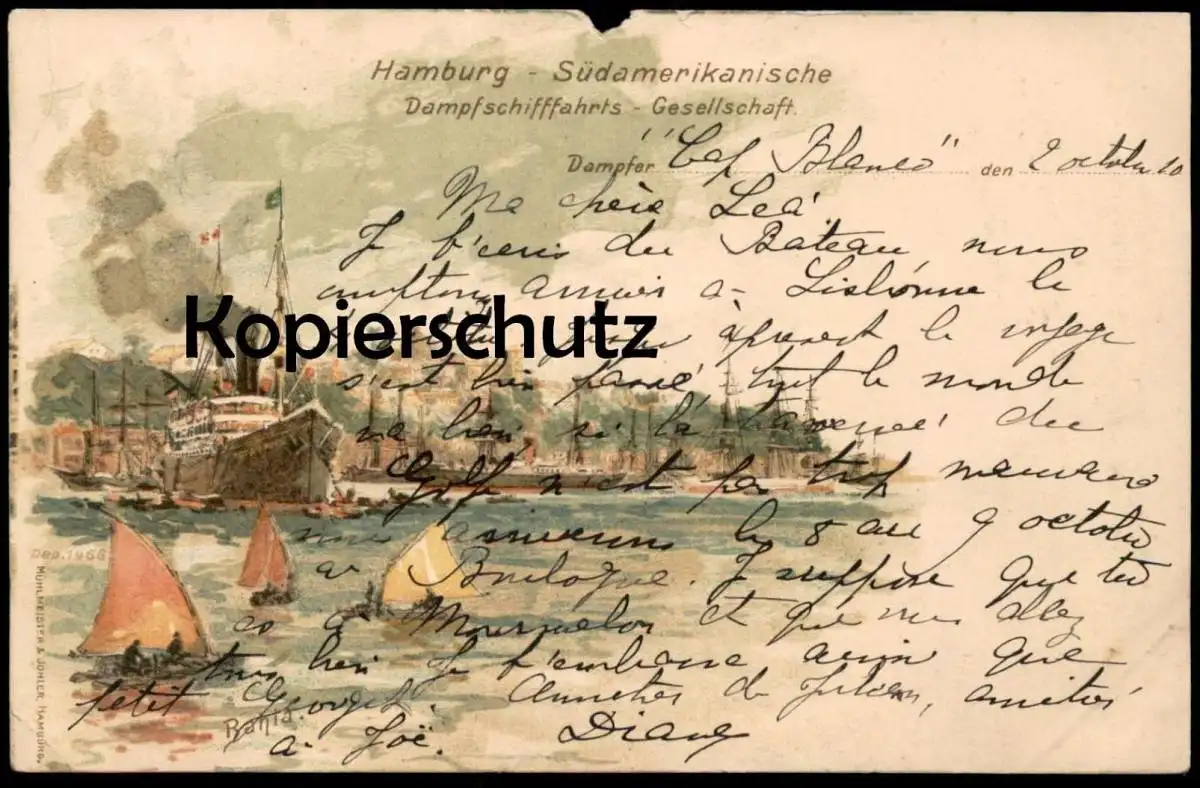 Hamburg - Südamerikanische
Dampfschifffahrts - Gesellschaft.
Dampfer "Cap Blanco" den 2 octobre 10
Ma chère Léa
Je t'ecris du Bateau, nous
arriver a Lisbonne le
Kopierschutz
après le voyage
s'est bien passé tout le monde
va bien si la traversée du
Golfe n'est pas trop mauvaise
nous arriverons le 8 au 9 octobre
a Boulogne. Je suppose que tu
es à Mourmelon et que vous allez
tous bien Je t'embrasse ainsi que
petit Georges. Amitiés de Julien, amitiés
a Zoë. Diane
Bahia.
Dep. 1966
MÜHLMEISTER & JOHLER, HAMBURG.